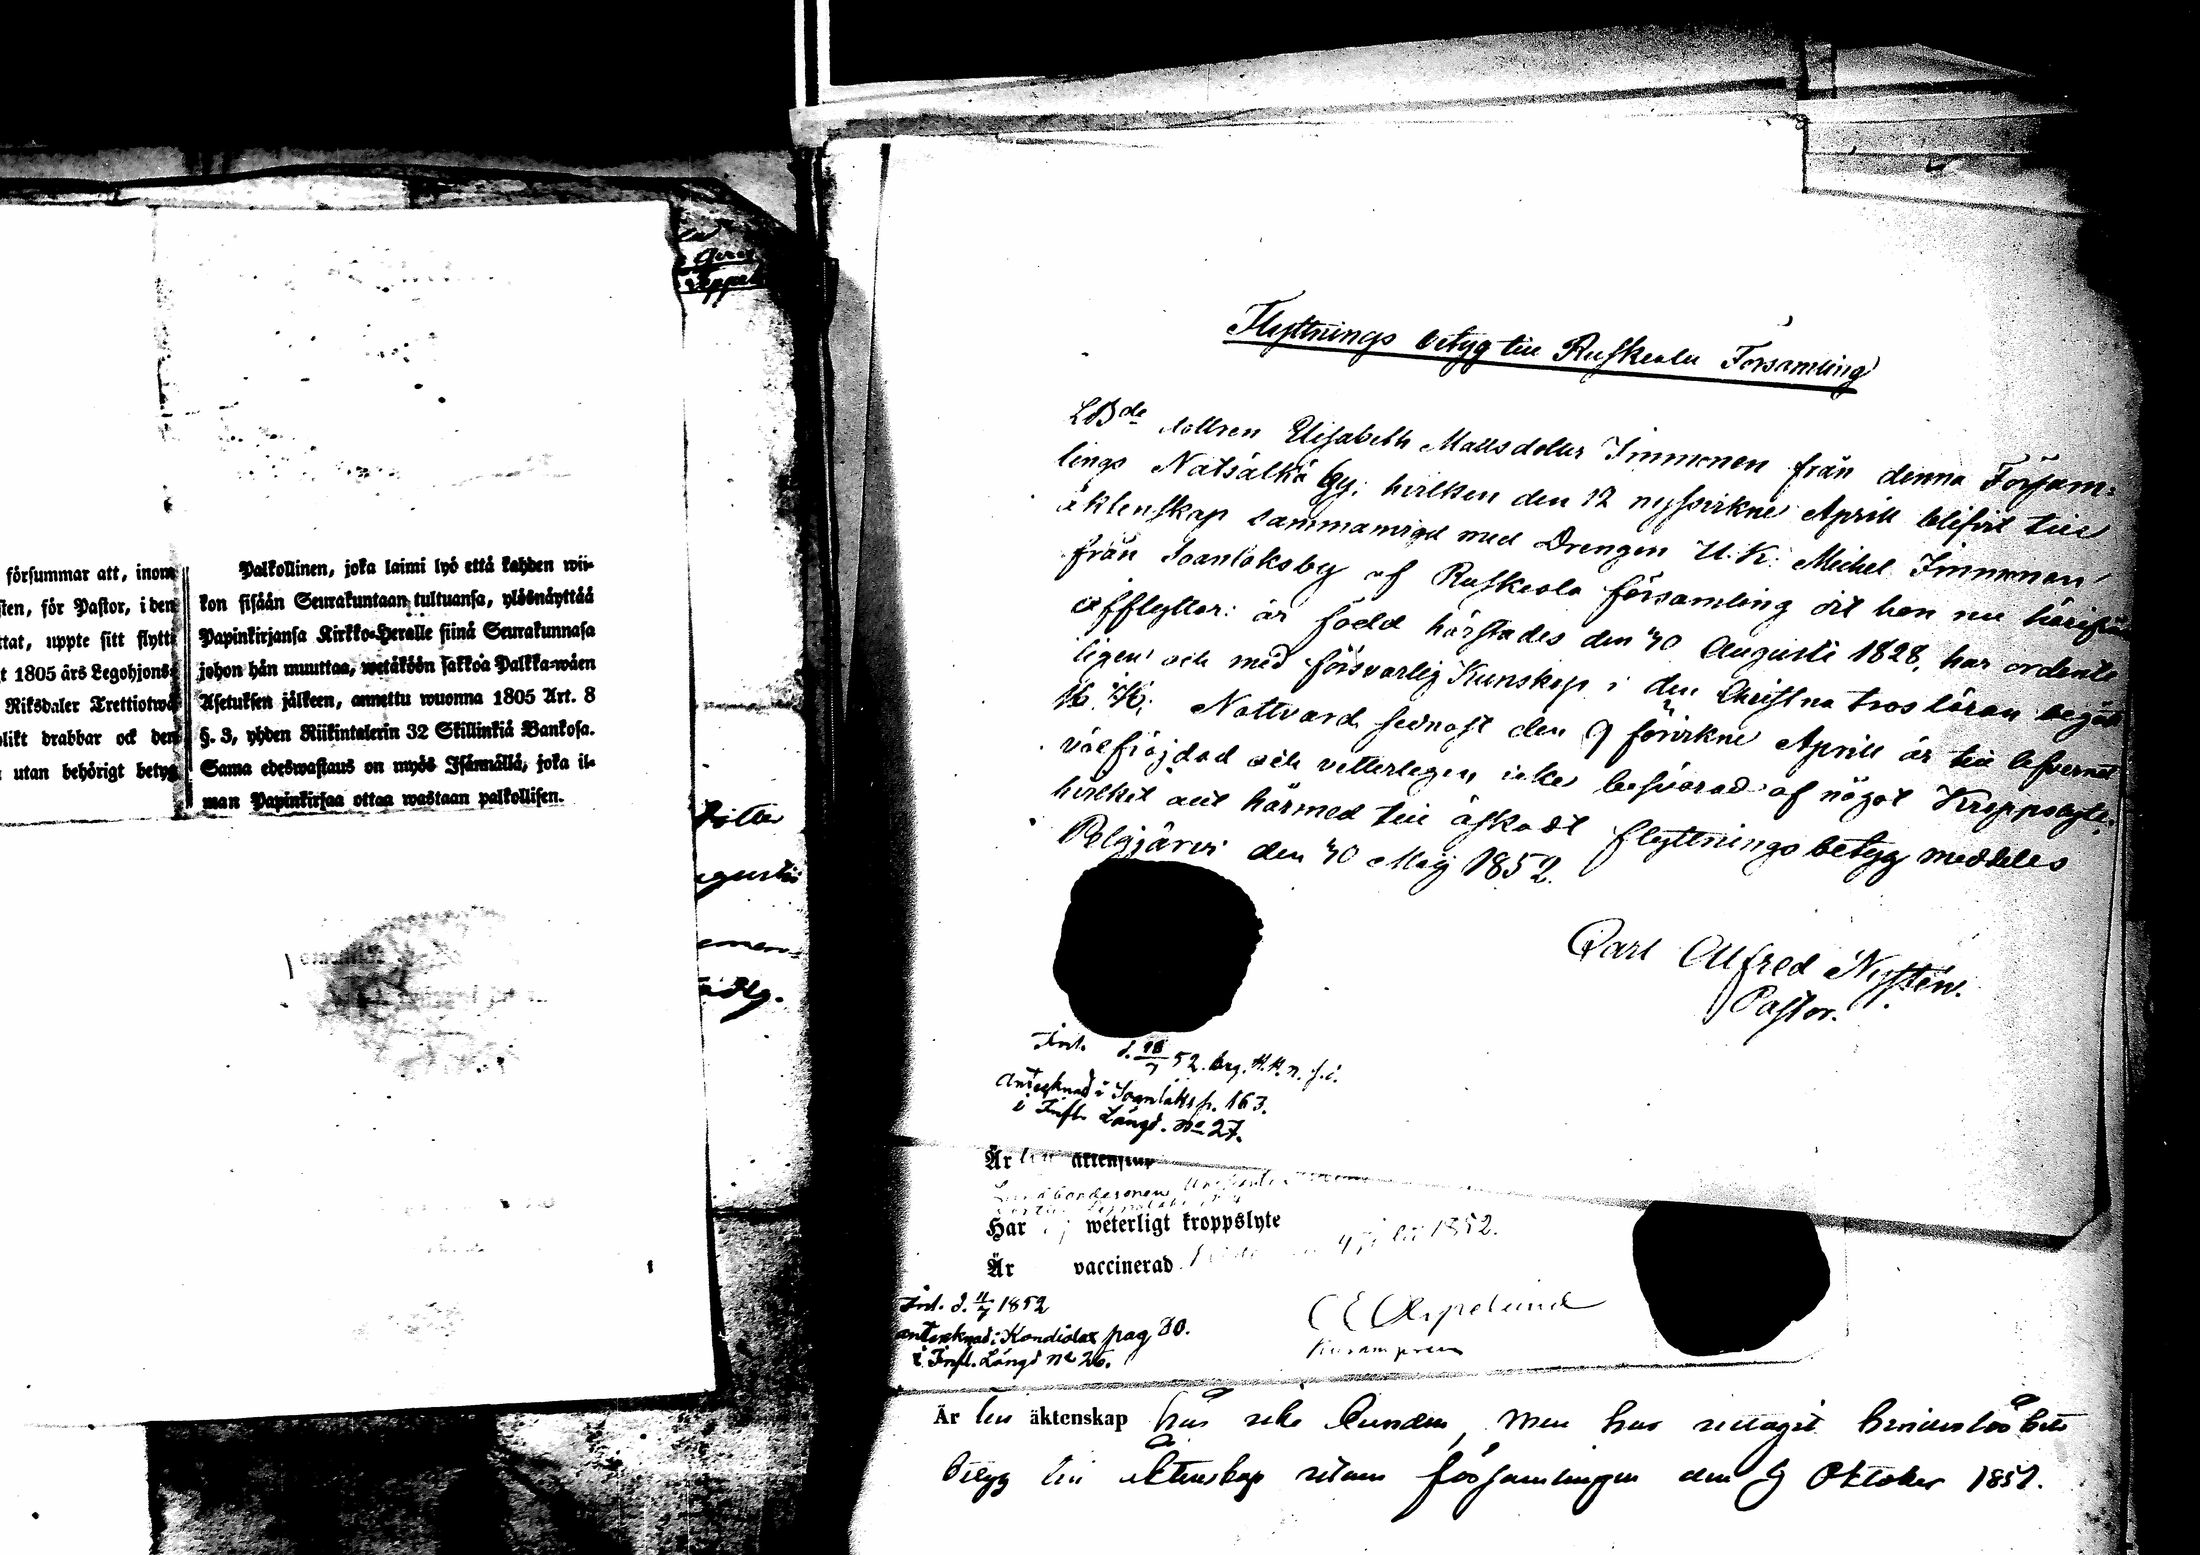 försummar att, inom
sten, för Pastor, i den
ttat, uppte sitt flytt
t 1805 års Legohjons-
Riksdaler Trettiotwå
likt drabbar ock den
utan behörigt betyg
Palkollinen, joka laimi lyö että kahden wii-
kon sisään Seurakuntaan tultuansa, ylösnäyttää
Papinkirjansa Kirkko-Heralle siinä Seurakunnasa
johon hän muuttaa, wetäköön sakkoa Palkka-wäen
Asetuksen jälkeen, annettu wuonna 1805 Art. 8
§. 3, yhden Riikintalerin 32 Skillinkiä Bankosa.
Sama edeswastaus on myös Isännällä, joka il-
man Papinkirjaa ottaa wastaan palkollisen.
Flyttnings betyg till Ruskeala Församling
LBde dottren Elisabeth Mattsdotter Immonen från denna Försam-
lings Matsälkä by; hvilken den 12 nysvikne April blifvit till
äktenskap sammanvigd med Drengen U.K. Michel Immonen
från Soanlaksby af Ruskeala församling dit hon nu härifrån
afflyttar: är född härstädes den 30 Augusti 1828, har ordentl
ligen och med försvarlig Kunskap i den Christna tros läran begått
H. H. Nattvard sednast den 9 förvikne April är till lefvernet
välfrejdad och vetterligen icke besvärad af något Kroppslyte;
hvilket allt härmed till äskadt flyttningsbetyg meddeles
Pelgjärvi den 30 Maij 1852.
Carl Alfred Nystén.
Pastor.
Inl. d. 18/7 52. beg. H. H. n. f. i.
antecknad i Soanlaks p. 163.
i Infl. Längd. No 27.
Är till äktenskap
Har ej weterligt kroppslyte
Är vaccinerad
Juli 1852.
Inl. d. 11/7 1852
antecknad i Kondiolax pag 80.
i Infl. Längd No 26.
Är till äktenskap här icke bunden, men har uttagit hinderslöshets
betyg till äktenskap utom församlingen den 9 Oktober 1851.